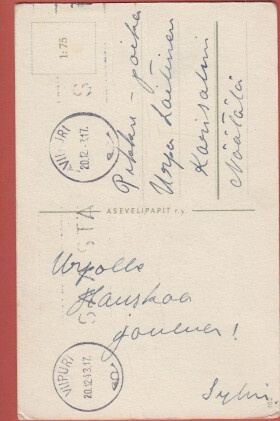 1:75
VIIPURI
20.12.43.17.
Pikku-poika
Urpo Laitinen
Karisalmi
Näätälä
ASEVELIPAPIT r.y.
Urpolle
Hauskaa
joulua!
VIIPURI
20.12.43.17.
Sylvi.